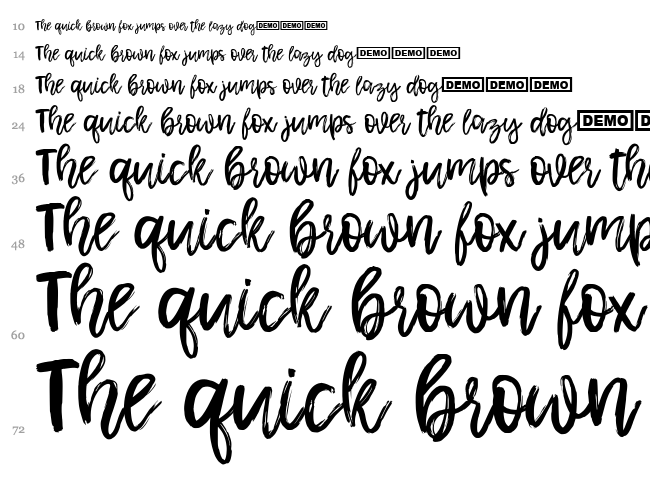 10 The quick brown fox jumps over the lazy dog DEMO DEMO DEMO
14 The quick brown fox jumps over the lazy dog DEMO DEMO DEMO
18 The quick brown fox jumps over the lazy dog DEMO DEMO DEMO
24 The quick brown fox jumps over the lazy dog DEMO D
36 The quick brown fox jumps over the
48 The quick brown fox jump
60 The quick brown fox
72 The quick brown